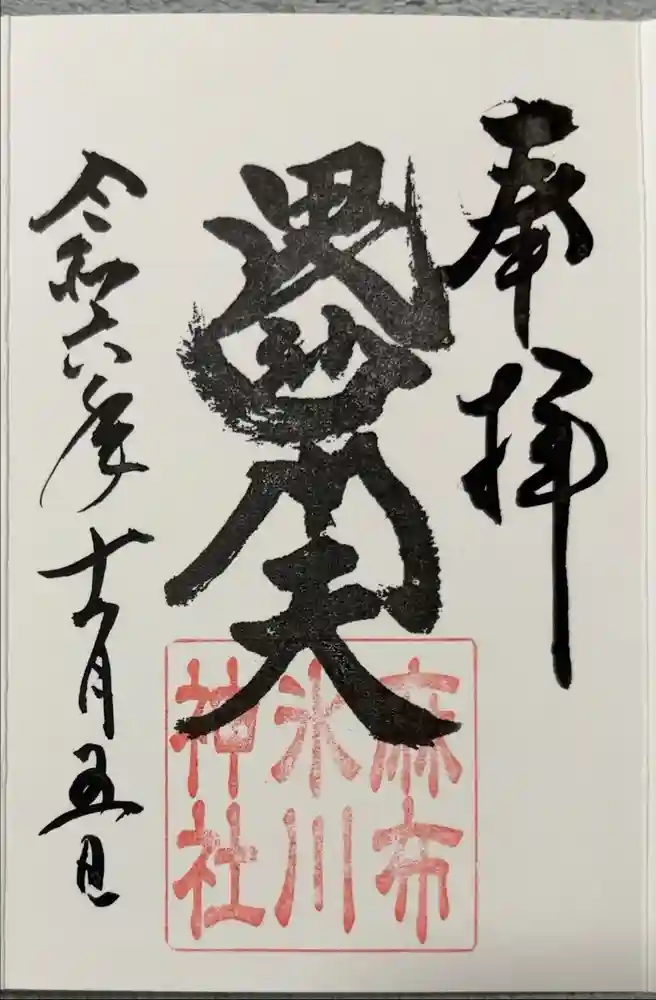 奉拝
令和六年十一月五日
麻布
氷川
神社